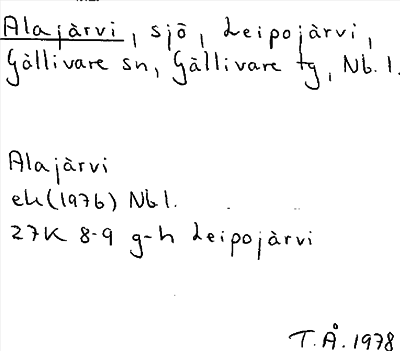 Alajärvi, sjö, Leipojärvi,
Gällivare sn, Gällivare tg, Nb. l.
Alajärvi
ek (1976) Nb l.
27K 8-9 g-h Leipojärvi
T.Å. 1978